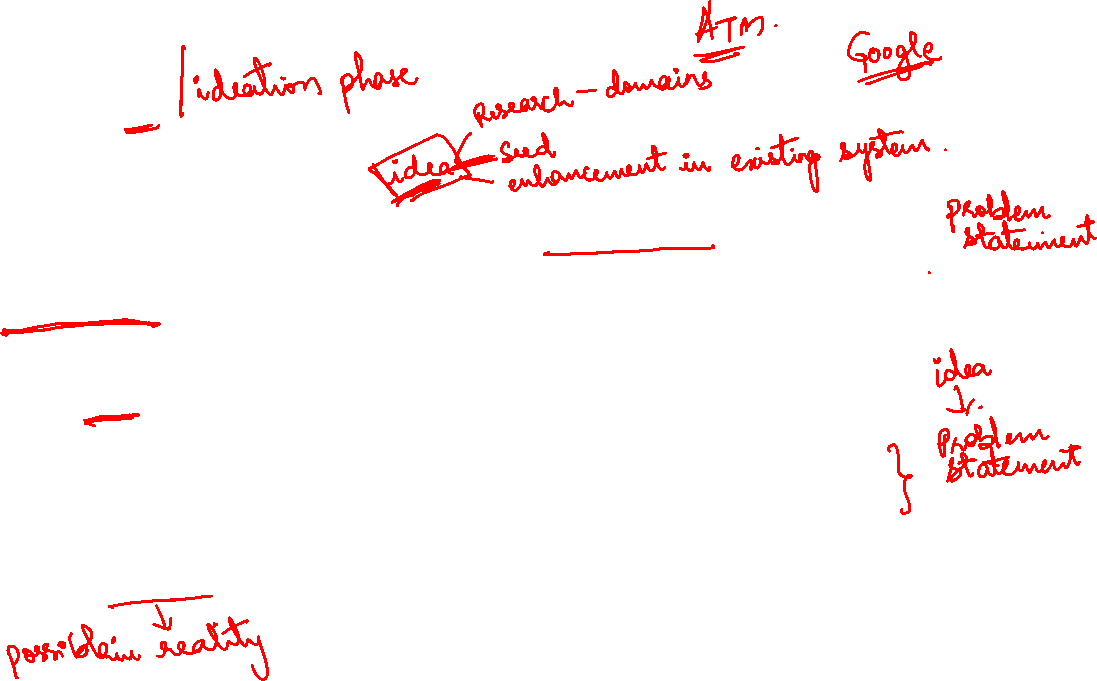 ATM.
Google
ideation phase
Research - domains
idea
seed
enhancement in existing system.
problem
statement
idea
problem
statement
possible in reality